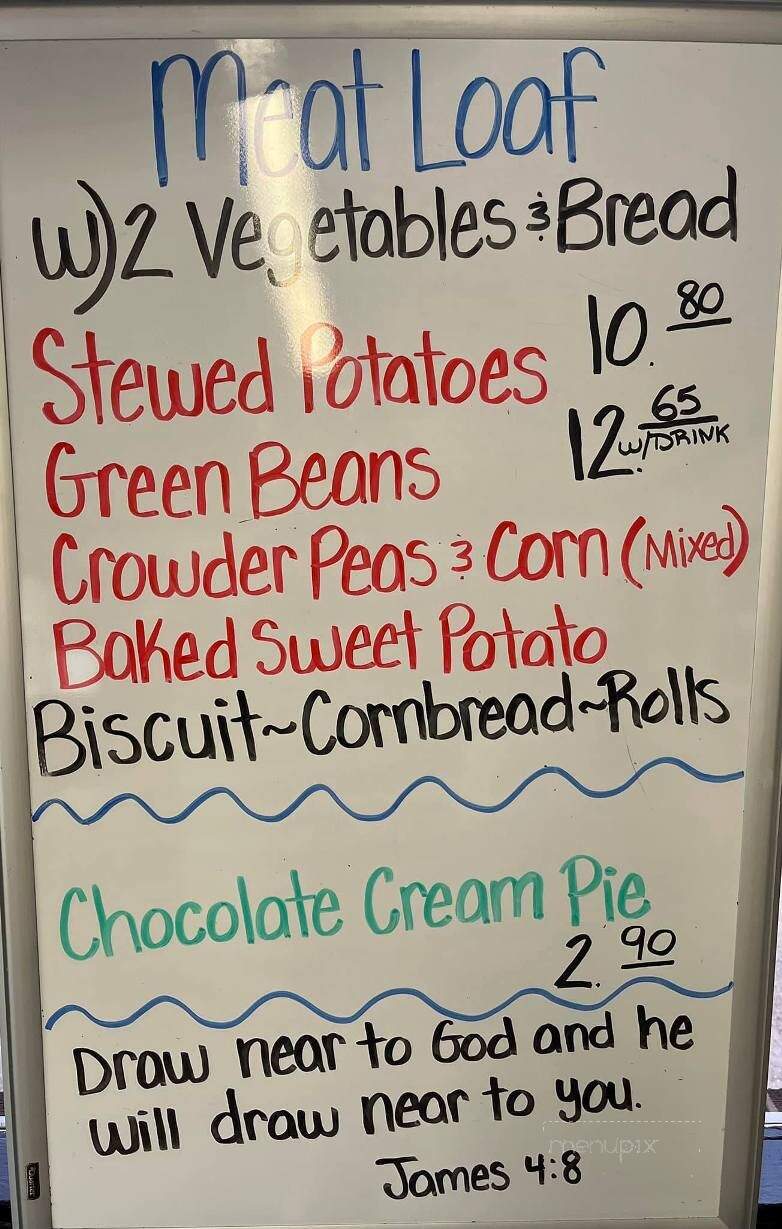 Meat Loaf
w/2 Vegetables & Bread
10.80
Stewed Potatoes
12.65
w/DRINK
Green Beans
Crowder Peas & Corn (Mixed)
Baked Sweet Potato
Biscuit~Cornbread~Rolls
Chocolate Cream Pie
2.90
Draw near to God and he
will draw near to you.
James 4:8
menupix